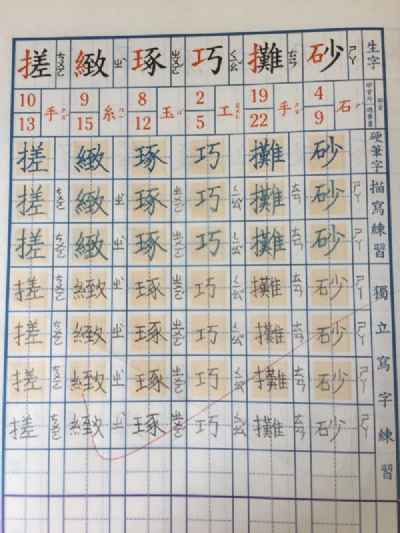 生字 硬筆字描寫練習 獨立寫字練習
砂 ㄕㄚ
石 4 9
砂 砂 ㄕㄚ 砂 ㄕㄚ 砂 ㄕㄚ 砂 ㄕㄚ 砂 ㄕㄚ 砂 ㄕㄚ
攤 ㄊㄢ
手 19 22
攤 攤 ㄊㄢ 攤 ㄊㄢ 攤 ㄊㄢ 攤 ㄊㄢ 攤 ㄊㄢ 攤 ㄊㄢ
巧 ㄑㄧㄠˇ
工 2 5
巧 巧 ㄑㄧㄠˇ 巧 ㄑㄧㄠˇ 巧 ㄑㄧㄠˇ 巧 ㄑㄧㄠˇ 巧 ㄑㄧㄠˇ 巧 ㄑㄧㄠˇ
琢 ㄓㄨㄛˊ
玉 8 12
琢 琢 ㄓㄨㄛˊ 琢 ㄓㄨㄛˊ 琢 ㄓㄨㄛˊ 琢 ㄓㄨㄛˊ 琢 ㄓㄨㄛˊ 琢 ㄓㄨㄛˊ
緻 ㄓˋ
糸 9 15
緻 緻 ㄓˋ 緻 ㄓˋ 緻 ㄓˋ 緻 ㄓˋ 緻 ㄓˋ 緻 ㄓˋ
搓 ㄘㄨㄛ
手 10 13
搓 搓 ㄘㄨㄛ 搓 ㄘㄨㄛ 搓 ㄘㄨㄛ 搓 ㄘㄨㄛ 搓 ㄘㄨㄛ 搓 ㄘㄨㄛ